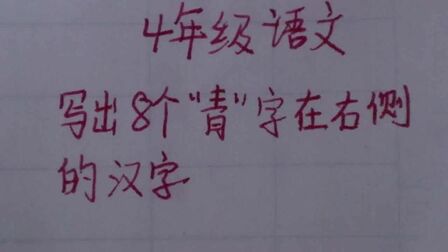 4年级语文
写出8个"青"字在右侧
的汉字